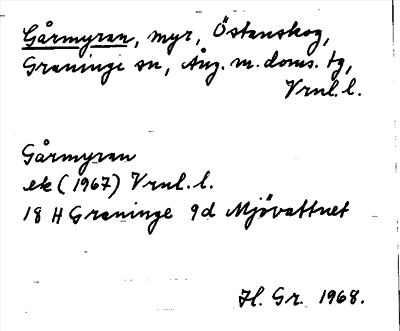 Gårmyran, myr, Östanskog,
Graninge sn, Ång. m. doms. tg,
Vrnl. l.
Gårmyran
ek (1967) Vrnl. l.
18 H Graninge 9d Mjövattnet
H. Gr. 1968.